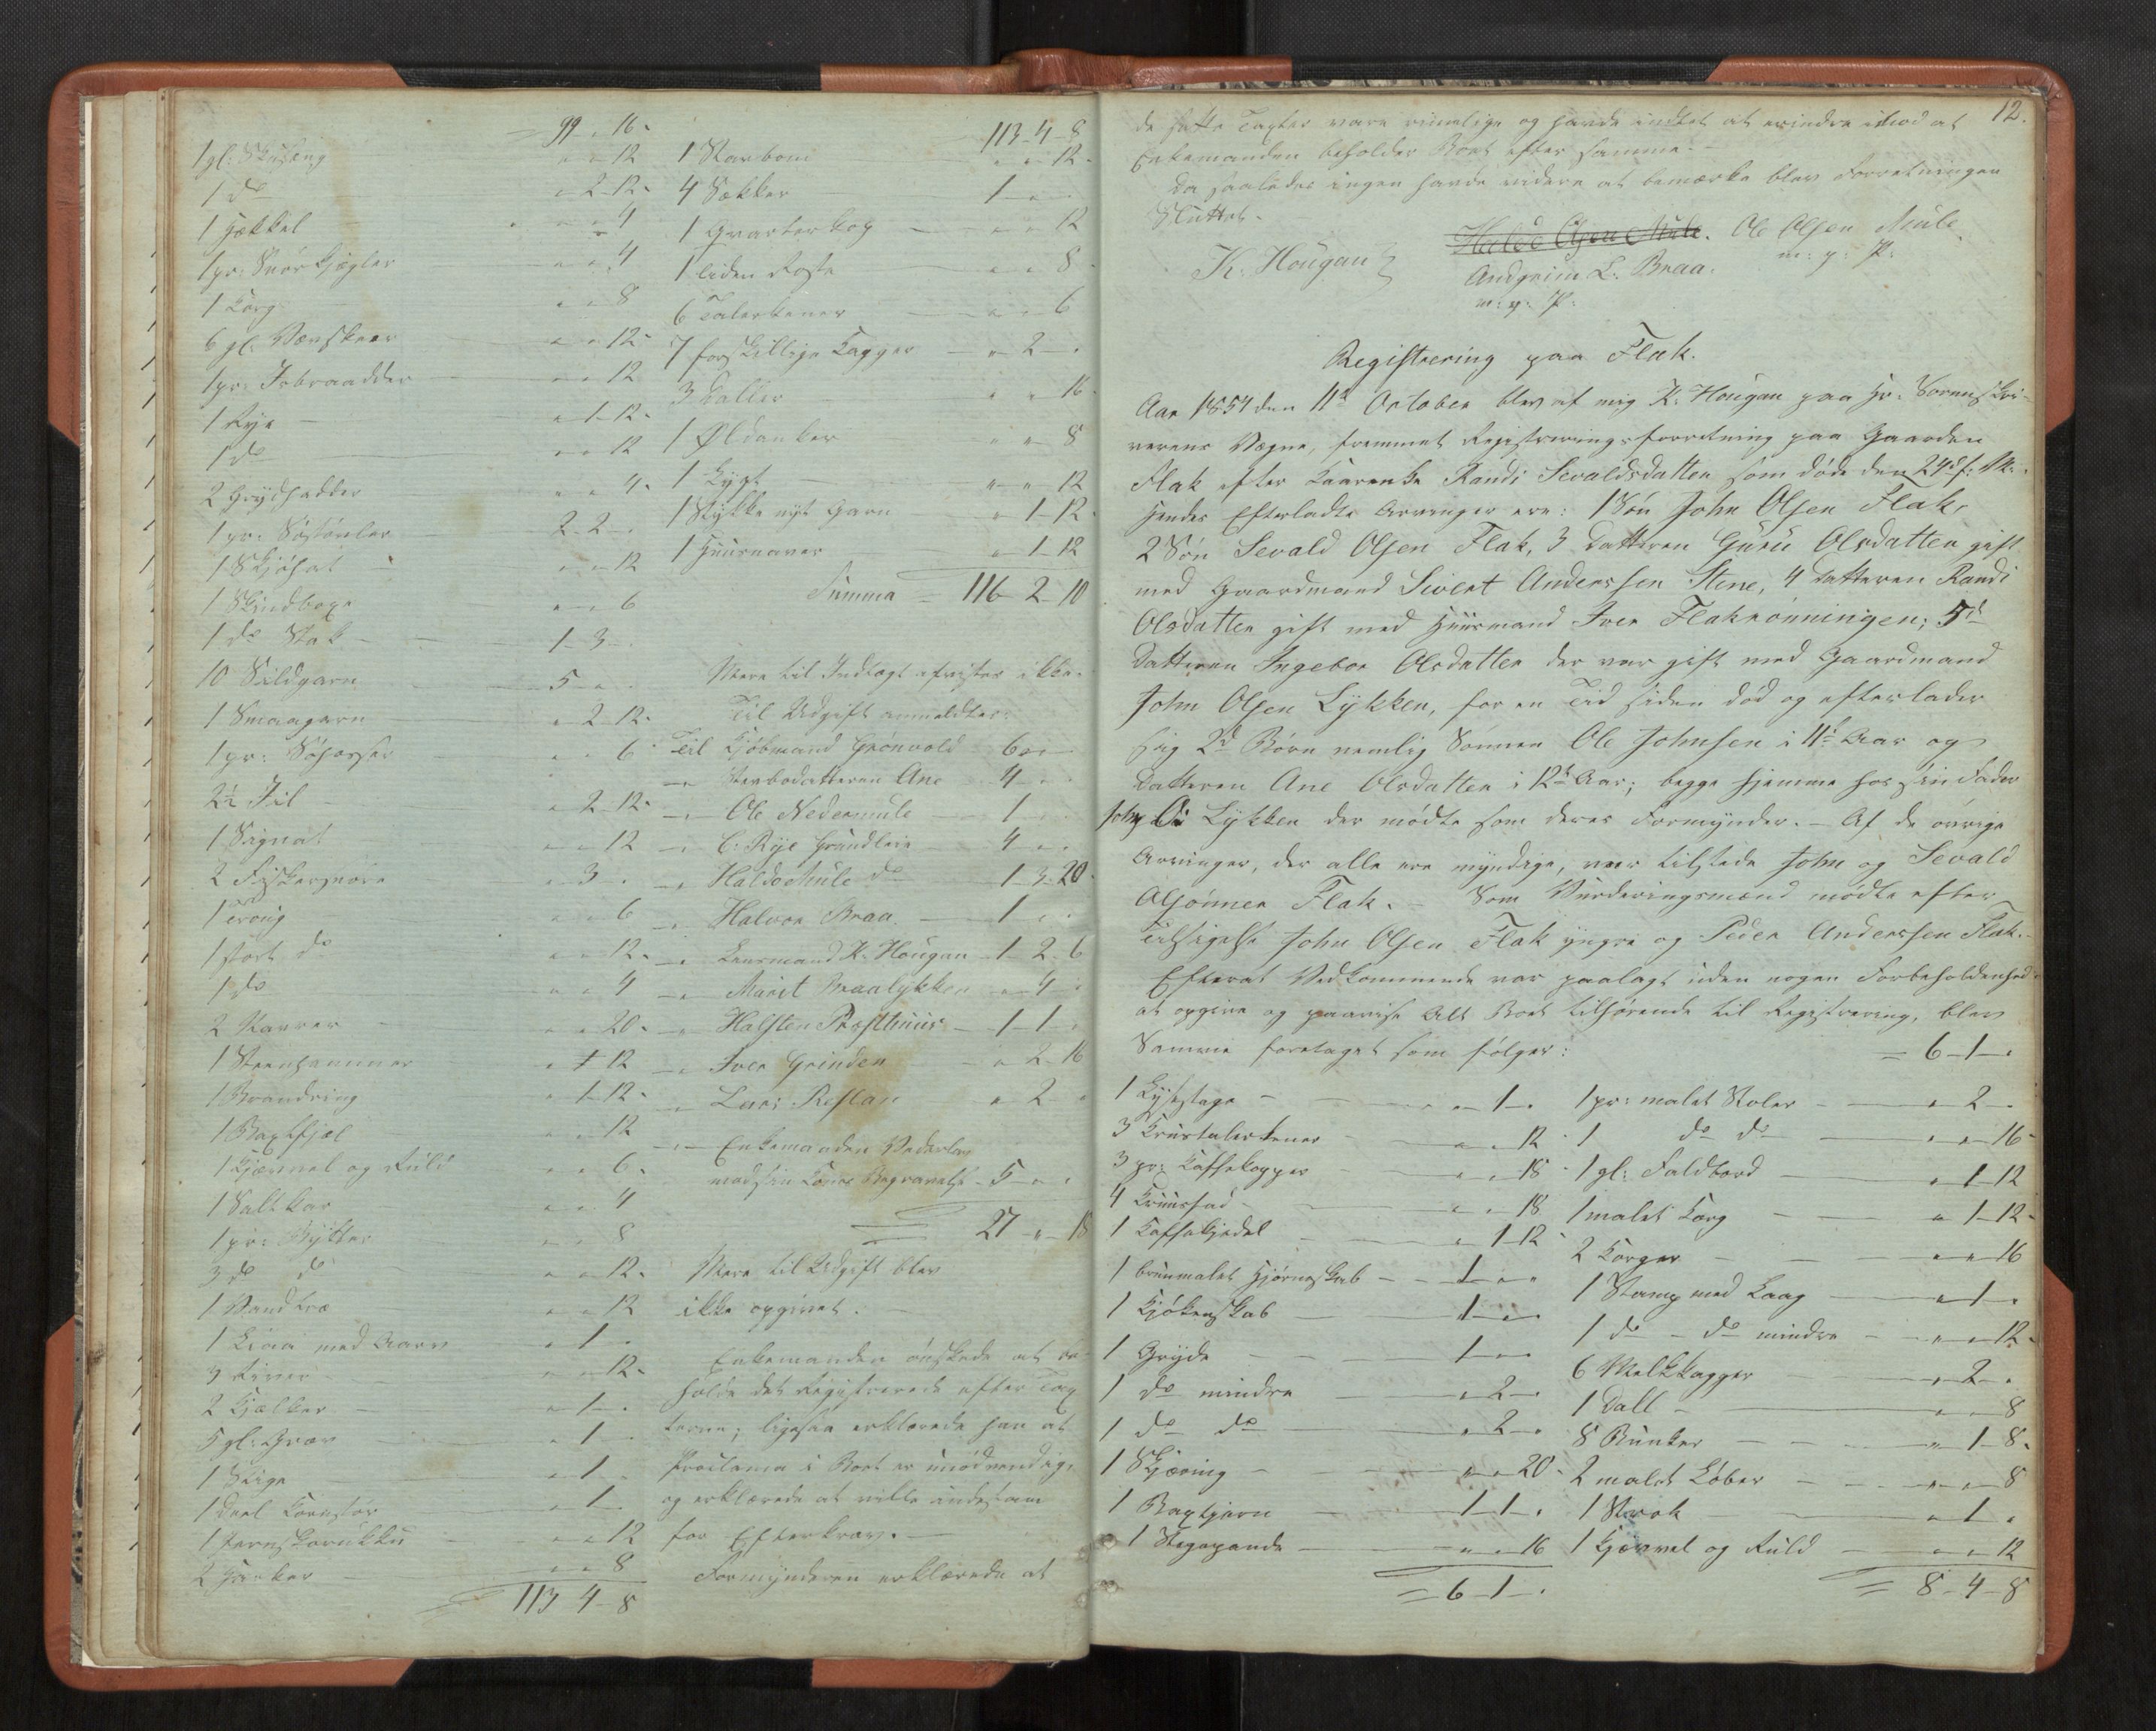 = 99 „ 16 „
1 gl: „ „ 12
1 do „ 2 - 12 „
1 Hekkel „ „ 4
1 pr: „ „ 4
1 Korg „ „ 8
6 gl: „ „ 12 „
1 pr: Isbraadder „ „ 12
1 Rye „ 1 - 12 „
1 do „ „ 12
2 Grydhadder „ „ 4 „
1 pr: Søstøvler 2 - 2 - „
1 „ „ 12
1 Skindboxe „ „ 6
1 do Stak 1 - 3 -
10 Sildgarn 5 - „ -
1 Smaagarn „ 2 - 12 „
1 pr: „ „ 6
2½ „ 2 - 12 „
1 „ „ 12
2 Fiskesnøre „ 3 -
1 Troug „ „ 6
1 stort do „ „ 12 „
1 do „ „ 4
2 „ „ 20 „
1 Steenhammer „ 12
1 Brandring „ 1 - 12 „
1 Baxtfjel „ „ 12
1 Kjævnel og Rull „ „ 6 „
1 Saltkar „ „ 4
1 pr: Bytter „ „ 8
3 do do „ „ 12 „
1 Vandtræ „ „ 12
1 Ljaa med Aarv „ 1 -
3 River „ „ 12 „
2 Kjelker „ 1 -
5 gl: „ 1 -
1 Stige „ 1 -
1 Deel „ 1 -
1 „ „ 12
2 „ „ 8
= 113 4 - 8
113 - 4 - 8
1 Karbom „ „ 12 „
4 Sækker 1 - „ -
1 „ „ 12
1 liden „ „ 8 „
6 Talerkener „ „ 6
7 forskillige Kagger „ 2 - „
3 Daller „ „ 16 „
1 Øldunker „ „ 8
1 Lygt „ „ 12
1 Stykke nyt Garn „ 1 - 12 „
1 Huusnaver „ 1 - 12
Summa = 116 - 2 - 10
Mere til Indtægt afvistes ikke.
Til Udgift anmeldtes:
Til Kjøbmand Grønvold 6 „ „
—„ Sterbodatteren Ane 4 „ „
—„ Ole Nedermule 1 „ „
—„ C: Rye Grundleie 4 „ „
—„ Haldo Mule do 1 - 3 - 20 „
—„ Halvor Braa 1 „ „
—„ Lensmand K. Hougan 1 - 2 - 6
—„ Marit Braalykken „ 4 „
—„ Halsten Presthuus 1 - 1 „
—„ Iver Grinden „ 2 - 16
—„ Lars Reflan „ 2 - „
—„ Enkemanden Vederlag
mod sin Kones Begravelse 5 „ „
= 27 „ 18
Mere til Udgift blev
ikke opgivet.
Enkemanden ønskede at be-
holde det Registrerede efter Tax
terne; ligesaa erklærede han at
Proclama i Boet er unødvendig,
og erklærede at ville indestaa
for Efterkrav. -
Formynderen erklærede at
12.
de satte Taxter vare rimelige og havde intet at erindre imod at
Enkemanden beholder Boet efter samme. -
Da saaledes ingen havde videre at bemærke blev Forretningen
Sluttet -
K. Hougan Haldo Olsen Mule. Ole Olsen Mule
m: p: P:
Andgrim L. Braa.
m: p: P:
Registrering paa Flak.
Aar 1854 den 11te October blev af mig K. Hougan paa Hr. Sorenskri-
verens Vegne, fremmet Registreringsforretning paa Gaarden
Flak efter Kaarenke Randi Sevaldsdatter som døde den 24de f: M:.
Hendes Efterladte Arvinger ere: 1 Søn John Olsen Flak,
2 Søn Sevald Olsen Flak, 3 Datteren Guru Olsdatter gift
med Gaardmand Sivert Anderssen Stene, 4 Datteren Randi
Olsdatter gift med Huusmand Iver Flakrønningen; 5te
Datteren Ingebor Olsdatter der var gift med Gaardmand
John Olsen Lykken, for en Tid siden død og efterlader
sig 2de Børn nemlig Sønnen Ole Johnsen i 11te Aar og
Datteren Ane Olsdatter i 12te Aar; begge hjemme hos sin Fader
John Ol Lykken der mødte som deres Formynder. - Af de øvrige
Arvinger, der alle ere myndige, var tilstede John og Sevald
Olsønner Flak. - Som Vurderingsmænd mødte efter
Tilsigelse John Olsen Flak yngre og Peder Anderssen Flak. -
Efterat Vedkommende var paalagt uden nogen Forbeholdenhed
at opgive og paavise Alt Boet tilhørende til Registrering, blev
Samme foretaget som følger:
1 Lysestage „ 1 - „
3 Krustalerkener „ „ 12 „
3 pr: Kaffekopper „ „ 18 „
4 Kruusfad „ „ 18
1 Kaffekjedel „ 1 - 12 „
1 brunmalet Hjørneskab 1 „ „
1 Kjøkenskab 1 „ „
1 Gryde 1 „ „
1 do mindre „ 2 - „
1 do do „ 2 - „
1 Skjæring „ „ 20 „
1 Baxtjern 1 - 1 - „
1 Stegepande „ „ 16
= 6 - 1 - „
= 6 - 1 - „
1 pr: malet Stoler „ 2 - „
1 do do „ „ 16 „
1 gl: Foldbord „ 1 - 12
1 malet Korg „ 1 - 12 „
2 Korger „ „ 16
1 Stamp med Laag „ 1 - „
1 do - do mindre „ „ 12 „
6 Melkkagger „ 2 - „
1 Dall „ „ 8
8 Bunker „ 1 - 8 „
2 malet Løber „ „ 8
1 Strok „ 1 „
1 Kjævel og Rull „ „ 12
= 8 - 4 - 8